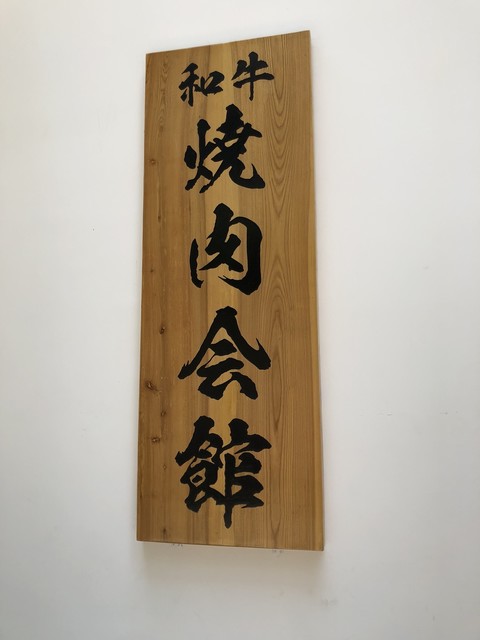 和牛
焼肉会館